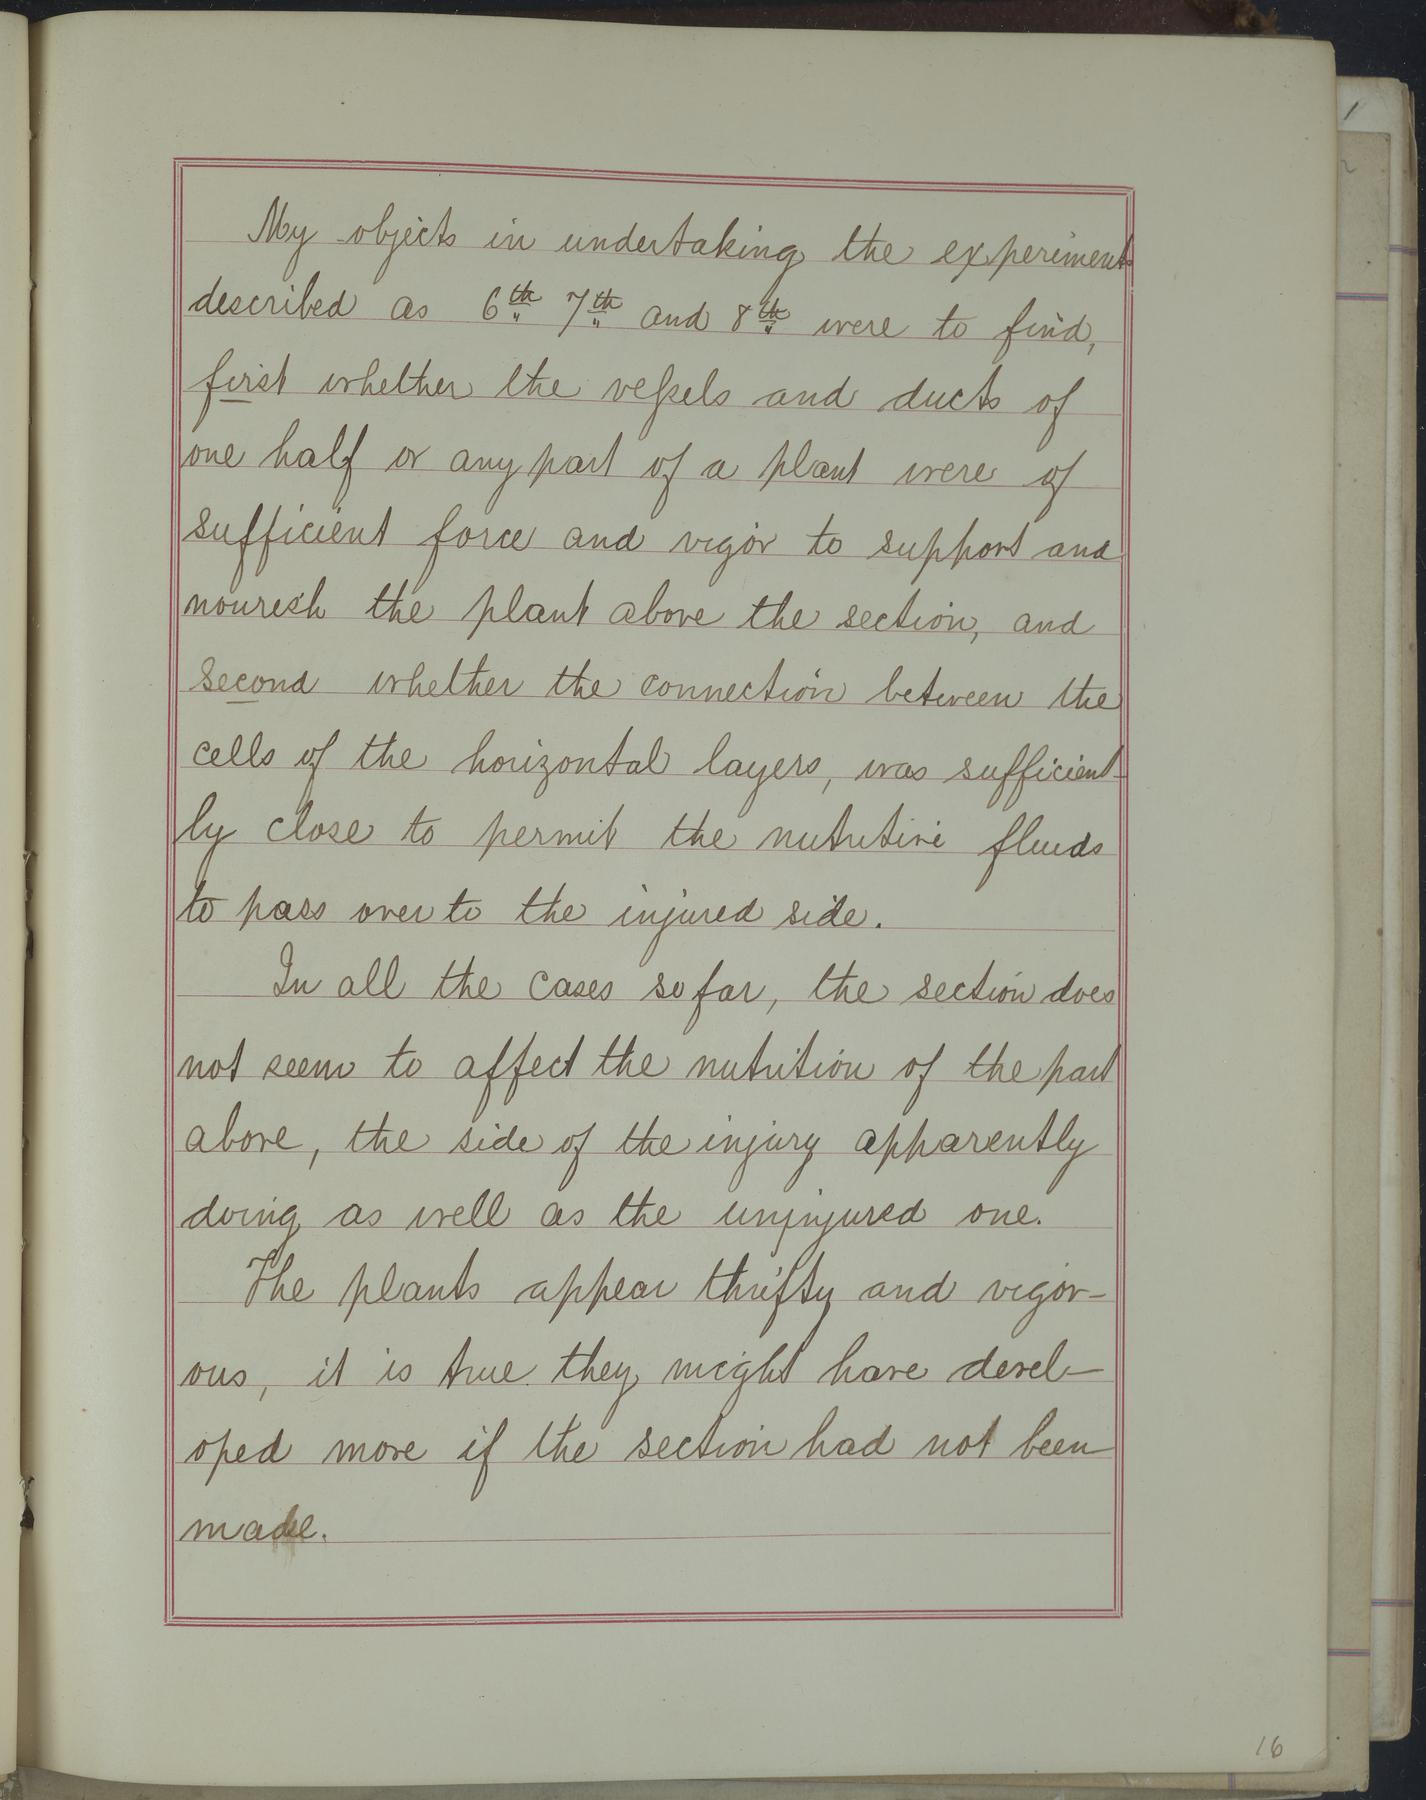 My objects in undertaking the experiments
described as 6th 7th and 8th were to find,
first whether the vessels and ducts of
one half or any part of a plant were of
sufficient force and vigor to support and
nourish the plant above the section, and
second whether the connection between the
cells of the horizontal layers, was sufficient-
ly close to permit the nutritive fluids
to pass over to the injured side.
In all the cases so far, the section does
not seem to affect the nutrition of the part
above, the side of the injury apparently
doing as well as the uninjured one.
The plants appear thrifty and vigor-
ous, it is true they might have devel-
oped more if the section had not been
made.
16
1
2